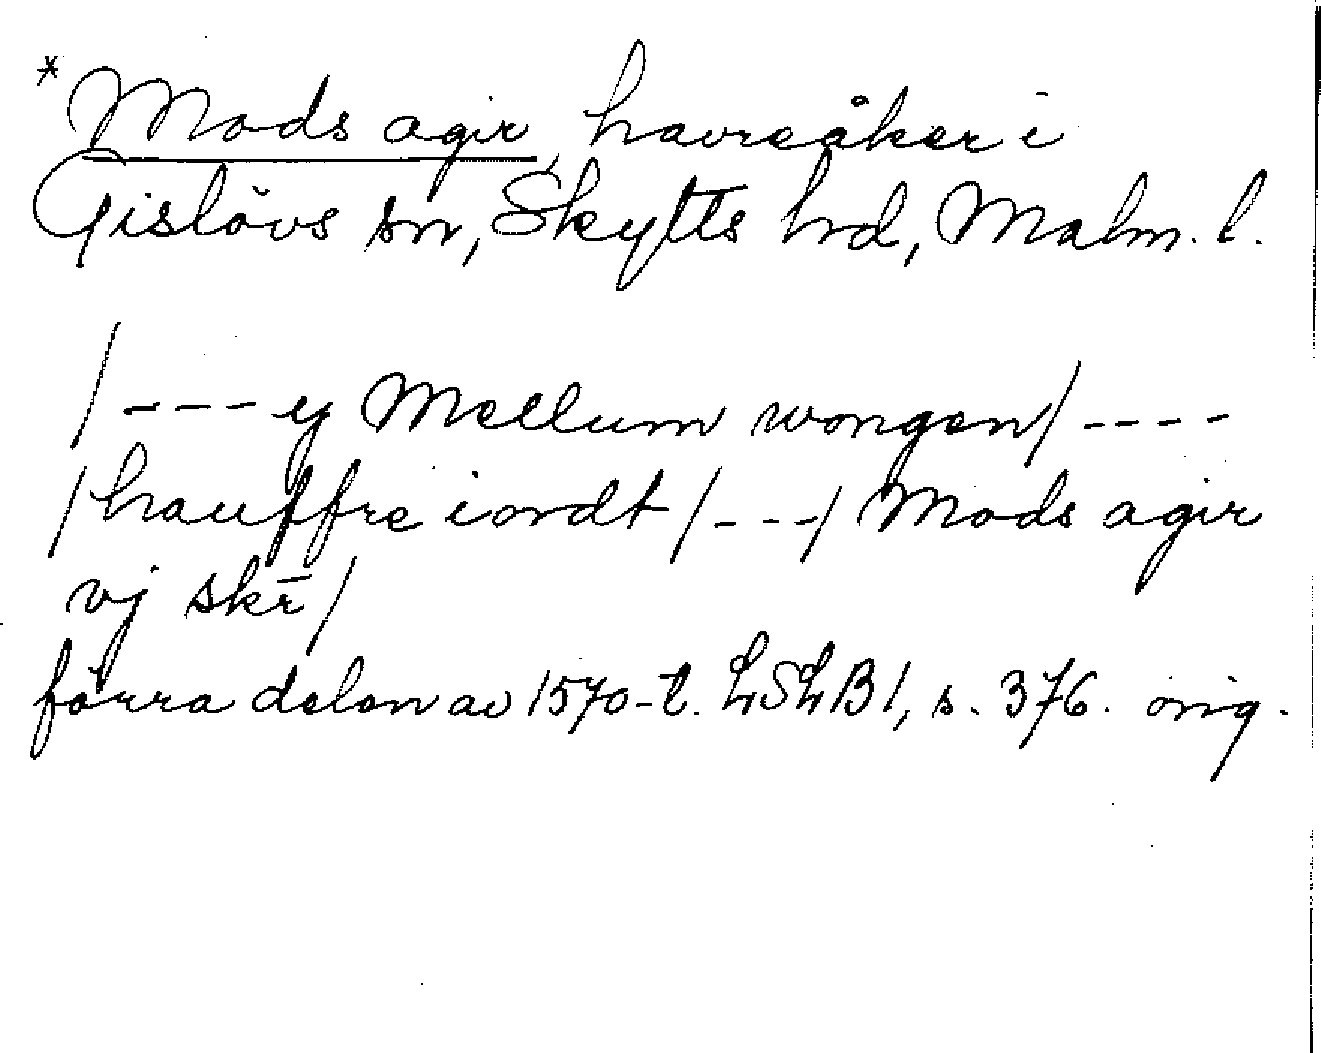 *Mads agir, havreåker i
Gislövs sn, Skytts hd, Malm. l.
/---ij Mellum wongen/----
/hauffre iordt/---/ Mads agir
vj skr̄/
förra delen av 1570-t. LSLB1, s. 376. orig.